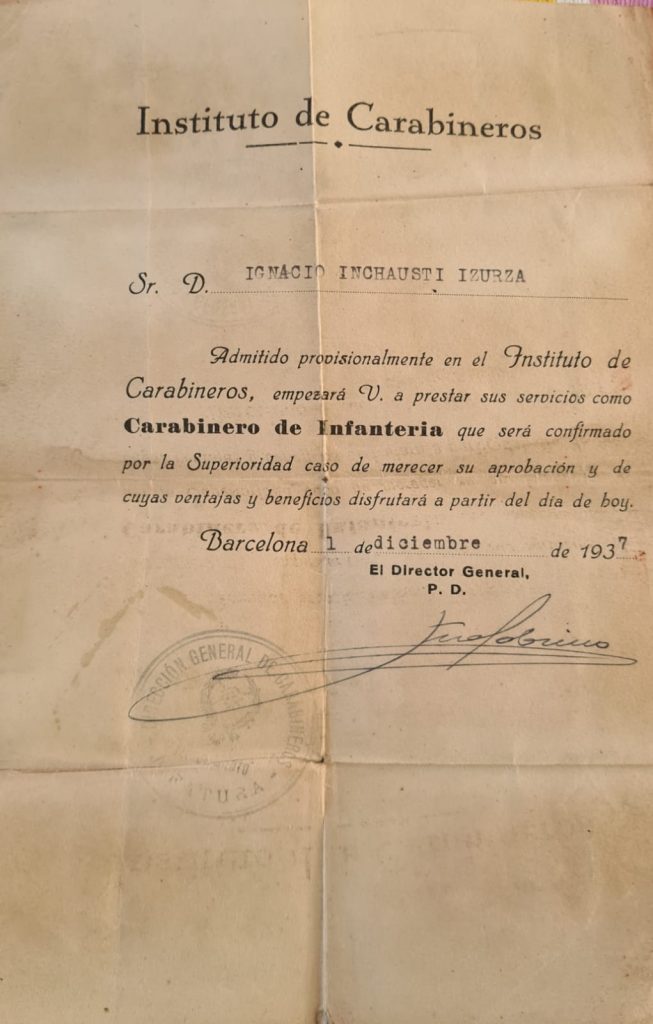 Instituto de Carabineros
Sr. D. IGNACIO INCHAUSTI IZURZA
Admitido provisionalmente en el Instituto de
Carabineros, empezará V. a prestar sus servicios como
Carabinero de Infanteria que será confirmado
por la Superioridad caso de merecer su aprobación y de
cuyas ventajas y beneficios disfrutará a partir del día de hoy.
Barcelona 1 de diciembre de 1937
El Director General,
P. D.
DIRECCIÓN GENERAL DE CARABINEROS